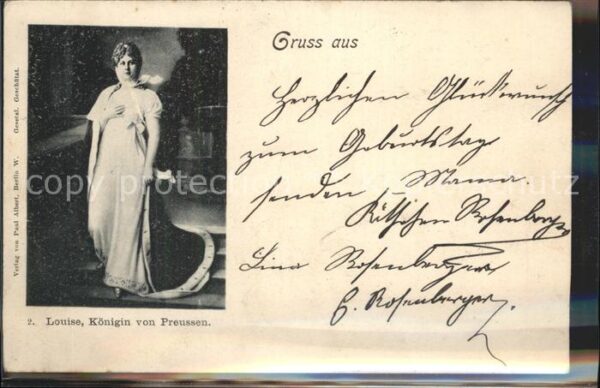 Gruss aus
Herzlichen Glückwunsch
zum Geburtstage
senden Mama.
Rosenberger
Lina Rosenberger
E. Rosenberger.
Verlag von Paul Albert, Berlin W. Gesetzl. Geschützt.
2. Louise, Königin von Preussen.
copy protection